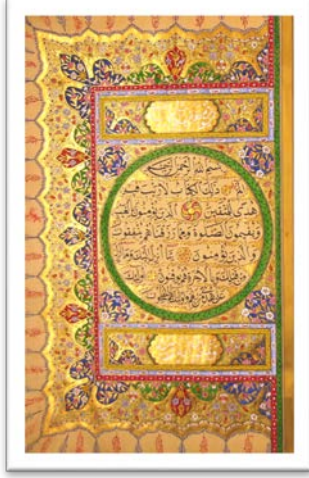 بسم الله الرحمن الرحيم
الم ذلك الكتاب لا ريب فيه
هدى للمتقين الذين يؤمنون بالغيب
ويقيمون الصلوة ومما رزقناهم ينفقون
والذين يؤمنون بما أنزل إليك وما أنزل
من قبلك وبالآخرة هم يوقنون أولئك
على هدى من ربهم وأولئك هم المفلحون